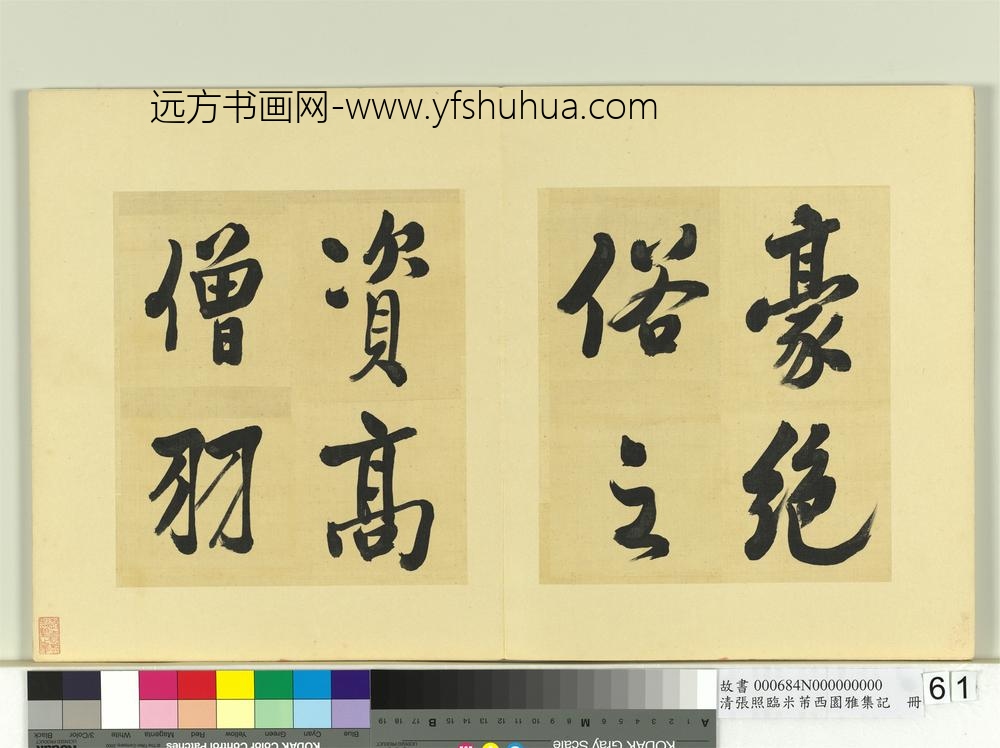 远方书画网-www.yfshuhua.com
豪絶
俗之
資高
僧羽
故書 000684N000000000
清張照臨米芾西園雅集記 冊
61
Blue
Cyan
Green
Yellow
Red
Magenta
White
3/Color
Black
KODAK Color Control Patches
KODAK Gray Scale
A 1 2 3 4 5 6 M 8 9 10 11 12 13 14 15 B 17 18 19